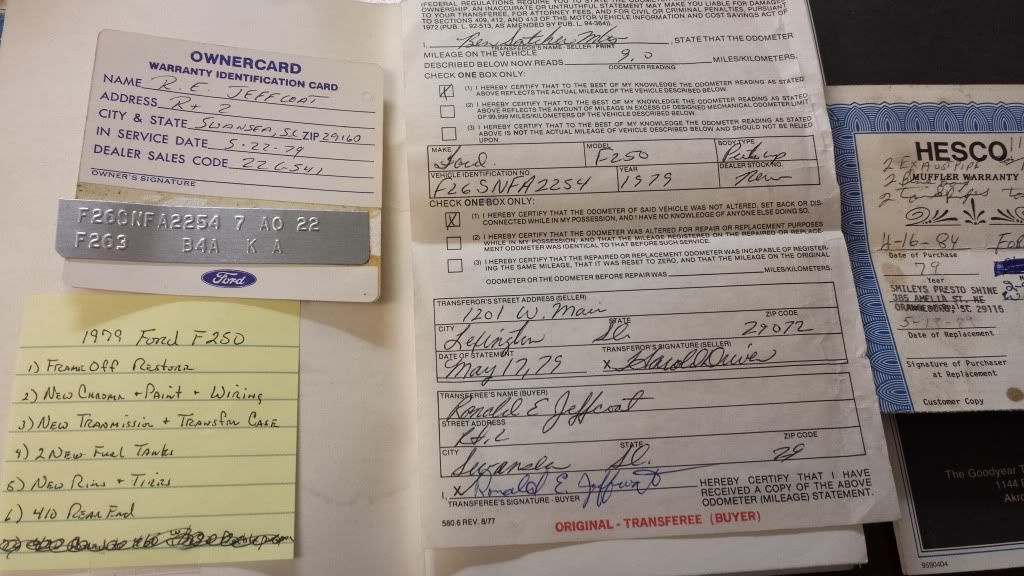 OWNERCARD
WARRANTY IDENTIFICATION CARD
NAME R. E. JEFFCOAT
ADDRESS Rt 2
CITY & STATE SWANSEA, SC ZIP 29160
IN SERVICE DATE 5-22-79
DEALER SALES CODE 22G541
OWNER'S SIGNATURE
F26SNFA2254 7 AO 22
F263 B4A K A
Ford
1979 Ford F250
1) Frame Off Restorr
2) New Chrome + Paint + Wiring
3) New Transmission + Transfer Case
4) 2 New Fuel Tanks
5) New Rims + Tires
6) 410 Rear End
(FEDERAL REGULATIONS REQUIRE YOU TO STATE THE
OWNERSHIP. AN INACCURATE OR UNTRUTHFUL STATEMENT MAY MAKE YOU LIABLE FOR DAMAGES
TO YOUR TRANSFEREE, FOR ATTORNEY FEES, AND FOR CIVIL OR CRIMINAL PENALTIES, PURSUANT
TO SECTIONS 409, 412, AND 413 OF THE MOTOR VEHICLE INFORMATION AND COST SAVINGS ACT OF
1972 (PUB. L. 92-513, AS AMENDED BY PUB. L. 94-364).
I, Ben Satcher Mtrs, STATE THAT THE ODOMETER
TRANSFEROR'S NAME - SELLER - PRINT
MILEAGE ON THE VEHICLE
DESCRIBED BELOW NOW READS 9.0 MILES/KILOMETERS.
ODOMETER READING
CHECK ONE BOX ONLY:
X (1) I HEREBY CERTIFY THAT TO THE BEST OF MY KNOWLEDGE THE ODOMETER READING AS STATED
ABOVE REFLECTS THE ACTUAL MILEAGE OF THE VEHICLE DESCRIBED BELOW.
(2) I HEREBY CERTIFY THAT TO THE BEST OF MY KNOWLEDGE THE ODOMETER READING AS STATED
ABOVE REFLECTS THE AMOUNT OF MILEAGE IN EXCESS OF DESIGNED MECHANICAL ODOMETER LIMIT
OF 99,999 MILES/KILOMETERS OF THE VEHICLE DESCRIBED BELOW.
(3) I HEREBY CERTIFY THAT TO THE BEST OF MY KNOWLEDGE THE ODOMETER READING AS STATED
ABOVE IS NOT THE ACTUAL MILEAGE OF VEHICLE DESCRIBED BELOW AND SHOULD NOT BE RELIED
UPON.
MAKE Ford MODEL F250 BODY TYPE Pickup
VEHICLE IDENTIFICATION NO. F26SNFA2254 YEAR 1979 DEALER STOCK NO. new
CHECK ONE BOX ONLY:
X (1) I HEREBY CERTIFY THAT THE ODOMETER OF SAID VEHICLE WAS NOT ALTERED, SET BACK OR DIS-
CONNECTED WHILE IN MY POSSESSION, AND I HAVE NO KNOWLEDGE OF ANYONE ELSE DOING SO.
(2) I HEREBY CERTIFY THAT THE ODOMETER WAS ALTERED FOR REPAIR OR REPLACEMENT PURPOSES
WHILE IN MY POSSESSION, AND THAT THE MILEAGE REGISTERED ON THE REPAIRED OR REPLACE-
MENT ODOMETER WAS IDENTICAL TO THAT BEFORE SUCH SERVICE.
(3) I HEREBY CERTIFY THAT THE REPAIRED OR REPLACEMENT ODOMETER WAS INCAPABLE OF REGISTER-
ING THE SAME MILEAGE, THAT IT WAS RESET TO ZERO, AND THAT THE MILEAGE ON THE ORIGINAL
ODOMETER OR THE ODOMETER BEFORE REPAIR WAS MILES/KILOMETERS.
TRANSFEROR'S STREET ADDRESS (SELLER)
1201 W. Main
CITY STATE ZIP CODE
Lexington SC. 29072
DATE OF STATEMENT TRANSFEROR'S SIGNATURE (SELLER)
May 17, 79 X Harold Driver
TRANSFEREE'S NAME (BUYER)
Ronald E Jeffcoat
STREET ADDRESS
Rt. 2
CITY STATE ZIP CODE
Swansea SC. 29
I, X Ronald E Jeffcoat HEREBY CERTIFY THAT I HAVE
TRANSFEREE'S SIGNATURE - BUYER RECEIVED A COPY OF THE ABOVE
ODOMETER (MILEAGE) STATEMENT.
580.6 REV. 8/77
ORIGINAL - TRANSFEREE (BUYER)
HESCO
MUFFLER WARRANTY
2
2
2
4-16-84
Date of Purchase
79
Year
SMILEYS PRESTO SHINE
385 AMELIA ST. NE
ORANGEBURG, SC 29115
Date of Replacement
Signature of Purchaser
at Replacement
Customer Copy
The Goodyear T
1144
Akro
9590404